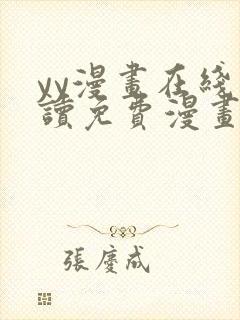 yy漫畫在綫
讀免費漫畫
張慶成